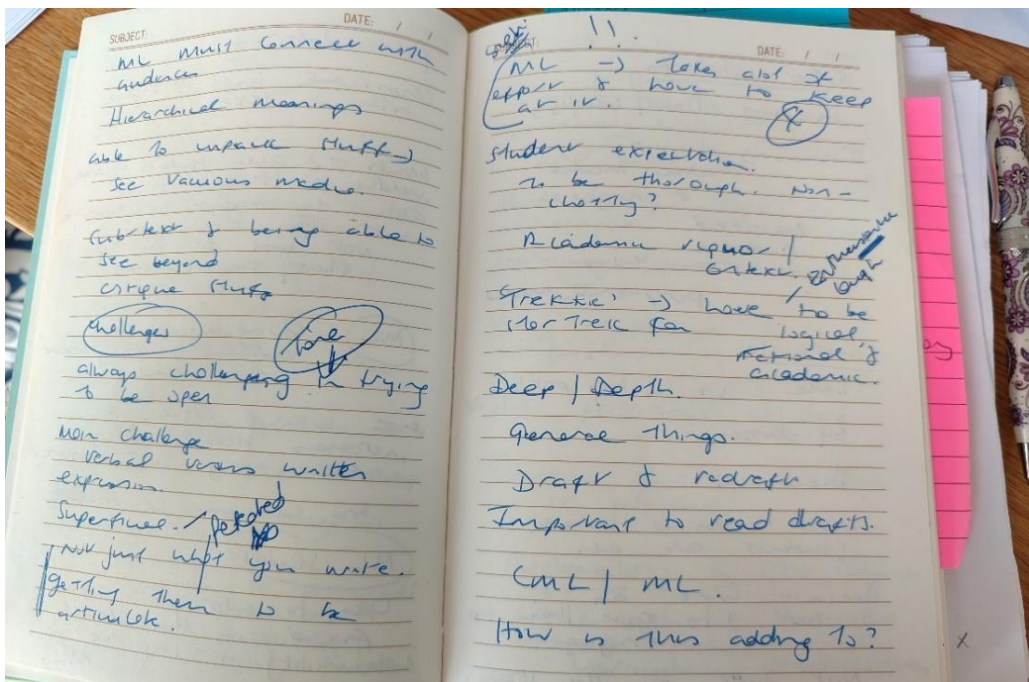 SUBJECT:
DATE: / /
ML Must Connect with
audiences
Hierarchical meanings
able to unpack stuff →
see various media.
Subtext & being able to
see beyond
critique stuff
Challenges
time
always challenging in trying
to be open
Main challenge
verbal versus written
expression.
Superficial. /
Not just what you write.
getting them to be
articulate.
!!
DATE: / /
ML → Takes alot of
effort & have to keep
at it.
Student expectation
to be thorough. Non-
chatty?
Academic rigour /
Context.
'Trekkie' → have to be
Star Trek fan / logical,
rational &
academic.
Deep / Depth.
General Things.
Draft & redraft
Important to read drafts.
CML / ML.
How is this adding to?
x